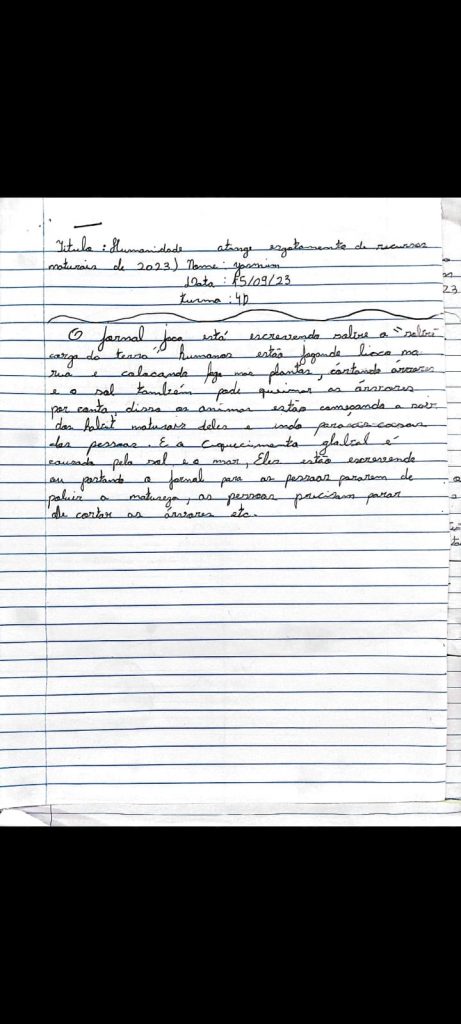 Titulo : Humanidade atinge esgotamento de recursos
naturais de 2023) Nome : yasmim
Data : 15/09/23
turma : 4D
O jornal joca está escrevendo sobre a "sobre
carga da terra", humanos estão jogando lioco na
rua e colocando fogo nas plantas, cortando arvores
e o sol também pode queimar as árvores
por conta, disso os animais estão começando a sair
das habit naturais deles e indo para as casas
das pessoas. E a equecimento global é
causado pelo sol e o mar, Eles estão escrevendo
ou postando o jornal para as pessoas pararem de
poluir a natureza, as pessoas precisam parar
de cortar as árvores etc.